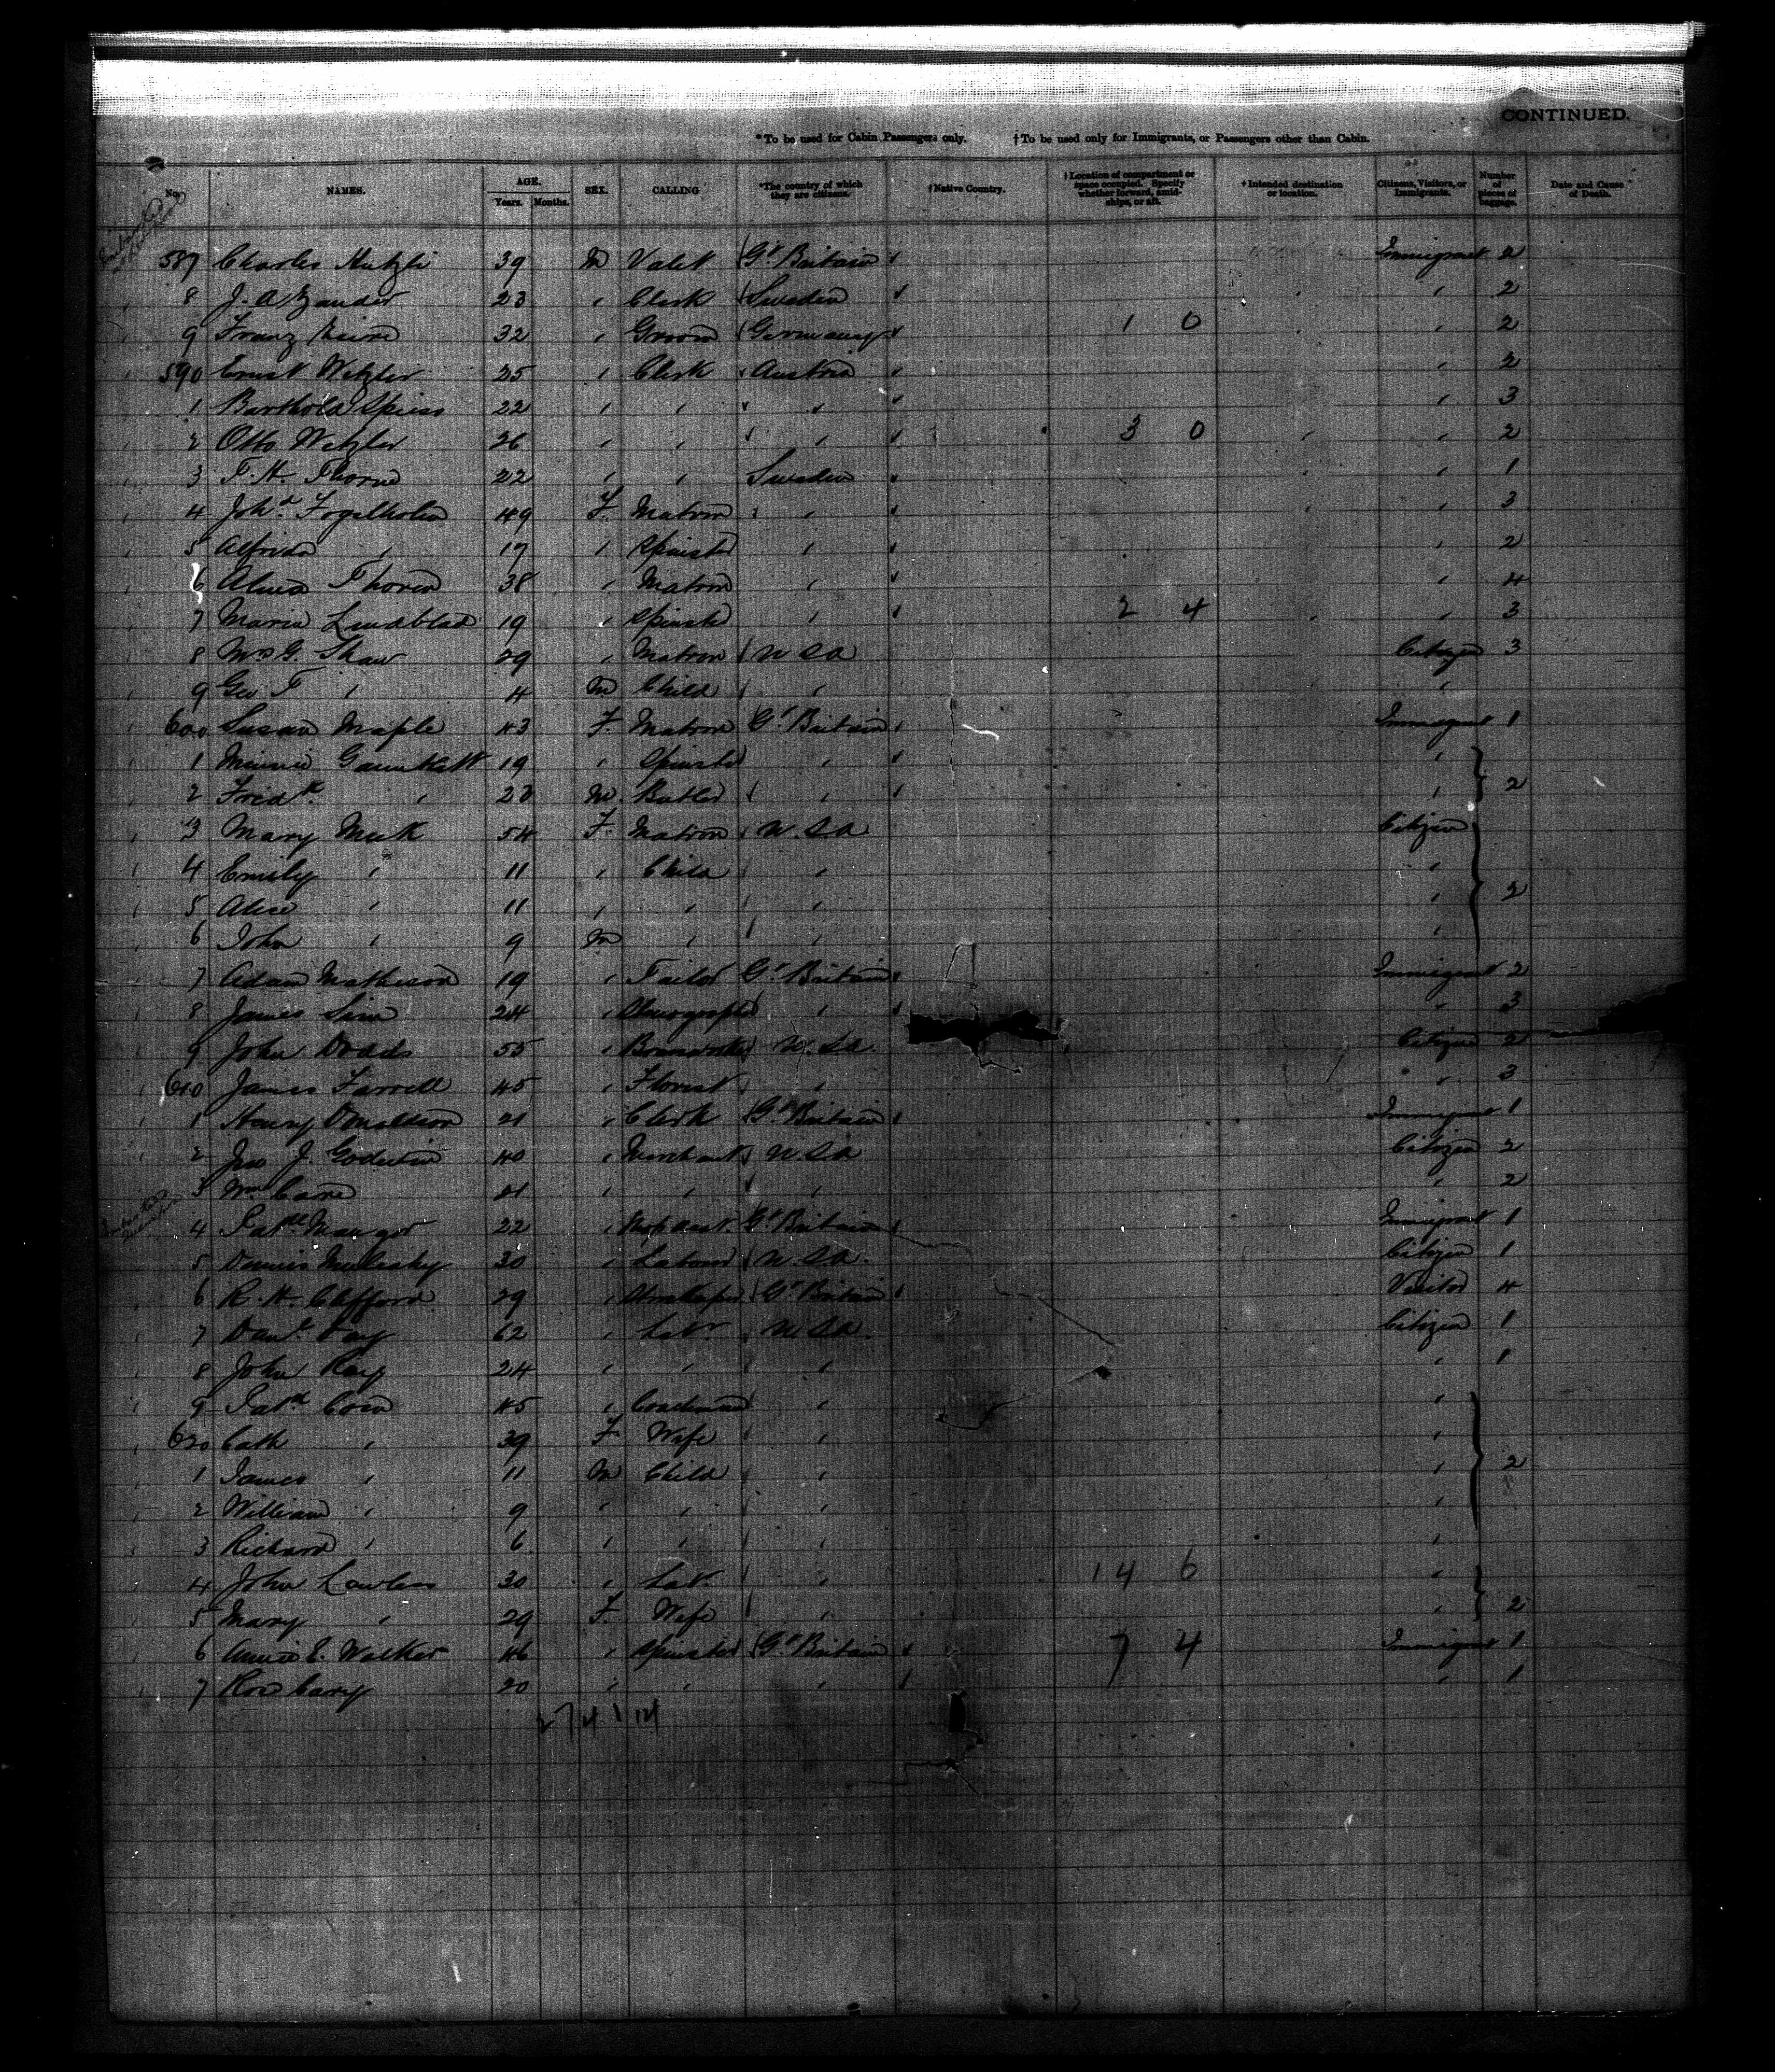 CONTINUED.
*To be used for Cabin Passengers only. †To be used only for Immigrants, or Passengers other than Cabin.
No. NAMES. AGE. Years. Months. SEX. CALLING *The country of which they are citizens. †Native Country. †Location of compartment or space occupied. Specify whether forward, amidships, or aft. †Intended destination or location. Citizens, Visitors, or Immigrants. Number of pieces of baggage. Date and Cause of Death.
587 Charles 39 M Valet Gt Britain Immigrant 2
8 J. A. Zander 23 " Clerk Sweden " 2
9 Franz 32 " Groom Germany 1 0 " 2
590 Ernst Wetzler 25 " Clerk Austria " 2
1 Barthold Spiess 22 " " " " 3
2 Otto Wetzler 26 " " " 3 0 " 2
3 F. H. Thorne 22 " " Sweden " 1
4 Joha Fogelholm 49 F. Matron " " 3
5 Alfrida " 17 " Spinster " " 2
6 Alma Thoren 38 " Matron " " 4
7 Maria Lindblad 19 " Spinster " 2 4 " 3
8 Mrs G. Shaw 29 " Matron U S A Citizen 3
9 Geo F " 4 M Child " "
600 Susan Maple 43 F. Matron Gt Britain Immigrant 1
1 Minnie Gauntlett 19 " Spinster " "
2 Fredk " 23 M. Butler " " 2
3 Mary Meek 54 F. Matron U. S A Citizen
4 Emily " 11 " Child " "
5 Alice " 11 " " " " 2
6 John " 9 M " " "
7 Adam Matheson 19 " Tailor Gt Britain Immigrant 2
8 James Sim 24 " Stenographer " " 3
9 John Dodds 55 " U. S A. Citizen 2
610 James Farrell 45 " Florist " " 3
1 Henry Donaldson 21 " Clerk Gt Britain Immigrant 1
2 Jno J. Godwin 40 " Merchant U. S A Citizen 2
3 Wm Cane 41 " " " " 2
4 22 " Gt Britain Immigrant 1
5 Dennis 30 " Labour U. S A. Citizen 1
6 R. H. Clifford 29 " Storekeeper Gt Britain Visitor 4
7 Danl Day 62 " Labr U. S A. Citizen 1
8 John Ray 24 " " " " 1
9 Patk 45 " Coachman " "
620 Cath " 39 F Wife " "
1 James " 11 M Child " " 2
2 William " 9 " " " "
3 Richard " 6 " " " "
4 John Lawless 30 " Lab. " 14 6 "
5 Mary " 29 F. Wife " " 2
6 Annie E. Walker 46 " Spinster Gt Britain 7 4 Immigrant 1
7 Rose Cary 20 " " " " 1